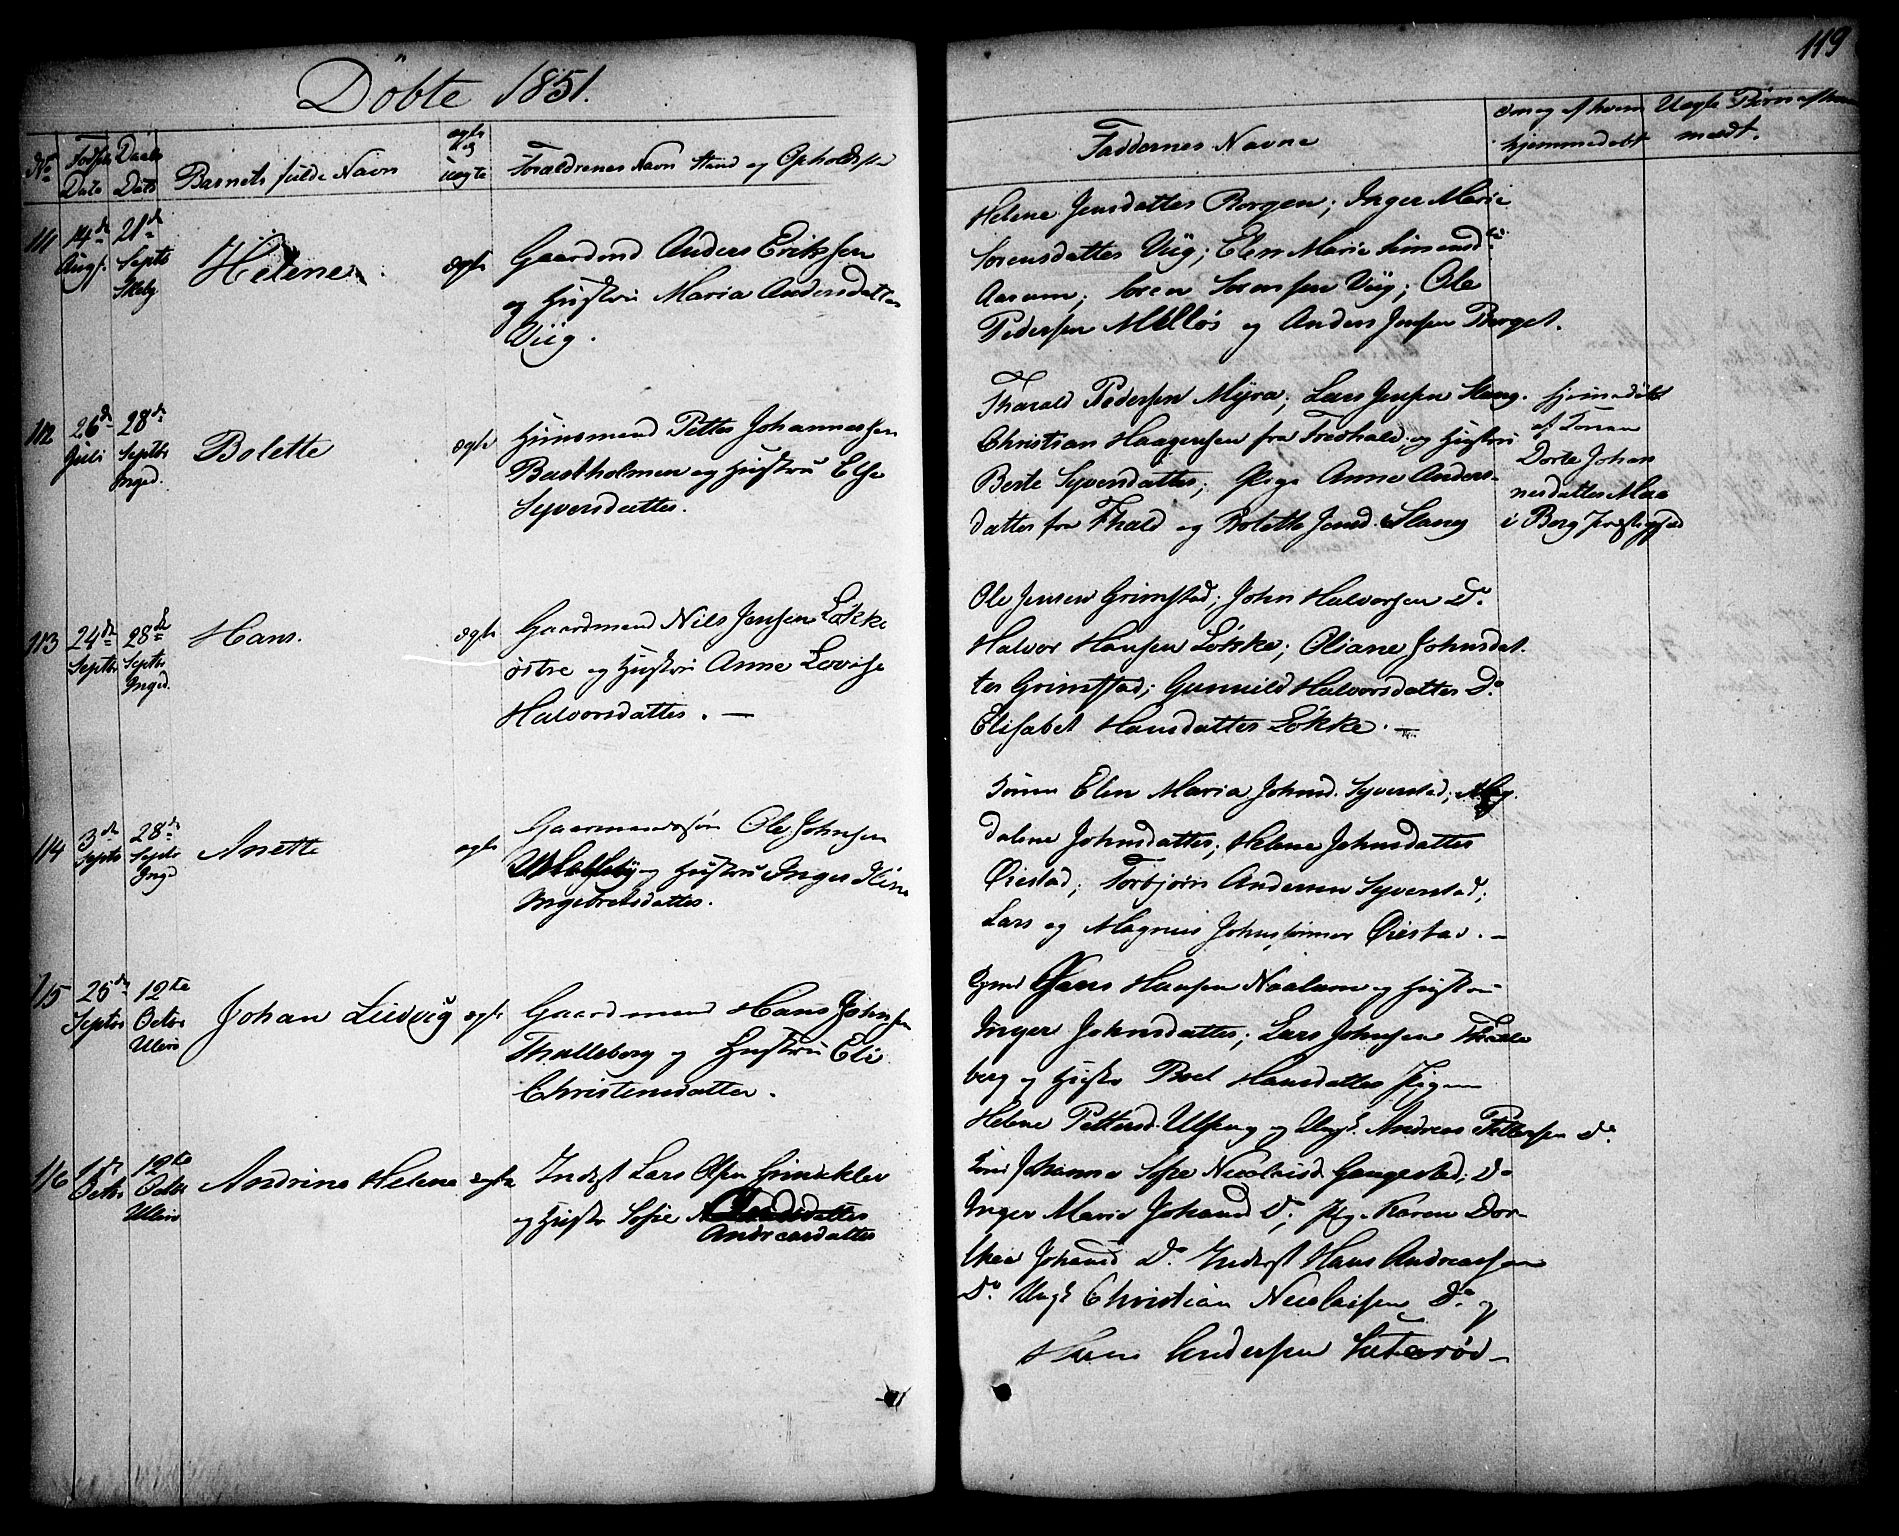 119
Döbte 1851.
No
Føds. Date
Daabs Date
Barnets fulde Navn
ægte og Uægte
Forældrenes Navn Stand og Opholdste
Faddernes Navne
om og af hvem hjemmedøbt
Uægte Børn
111
14de Augst
21de Septb
Helene
ægte
Gaardmd Anders Eriksen
og Hustru Maria Andersdatter
Viig.
Helene Jensdatter Borgen; Inger Marie
Sorensdatter Viig; Elen Marie Simensdtr
Aarum; Soren Sorensen Viig; Ole
Pedersen Melløs og Anders Jensen Berget.
112
26de Juli
28de Septbr Inged.
Bolette
ægte
Huusmand Petter Johannessen
Bastholmen og Hustru Else
Syversdatter.
Tharald Pedersen Myra; Lars Jensen Stang.
Christian Haagensen fra Fredhald og Hustru
Berte Syversdatter; Pige Anne Anders-
datter fra Fhald og Bolette Jensd. Stang
Hjemmedøbt
af Konen
Dorte Johan
nesdatter
i Berg Præstegjeld
113
24de Septbr
28de Septbr Inged.
Hans.
ægte
Gaardmand Nils Jensen Løkke
østre og Hustru Anne Lovise
Halvorsdatter. —
Ole Jensen Grimstad; John Halvorsen Do.
Halvor Hansen Løkke; Oliane Johnsdat
ter Grimstad; Gunnild Halvorsdatter Do.
Elisabet Hansdatter Løkke. —
114
3de Septbr
28de Septbr Inged
Anette
ægte
Gaarmandssøn Ole Johnsen
og Hustru Inger
Ingebretsdatter.
Konen Elen Maria Johnsd. Syverstad; Mag
dalene Johnsdatter; Helene Johnsdatter
Øiestad; Torbjørn Andersen Syverstad;
Lars og Magnus Johnssønner Øiestad. —
115
25de Septbr
12te Octbr Ullerø
Johan Ludvig
ægte
Gaardmand Hans Johnsen
Thalleborg og Hustru Eli
Christensdatter.
Gmd Hans Hansen Navlum og Hustru
Inger Johnsdatter; Lars Johnsen Thalle
berg og Hustr Boel Hansdatter Pigen
Helene Pettersd. Ulseng og Ungk. Andreas Pettersen Do.
116
1de Octbr
12te Octbr Ullerø
Andrine Helene
ægte
Inderst Lars Olsen Grimskler
og Hustr Sofie
Andreasdatter
Kone Johanna Sofie Nicolaisd. Gangestad; Do
Inger Marie Johansd Do; Pig. Karen Dor-
thea Johansd Do. Inderst Hans Andreassen
Do. Ungk Christian Nicolaisen Do. og
Hans Andersen